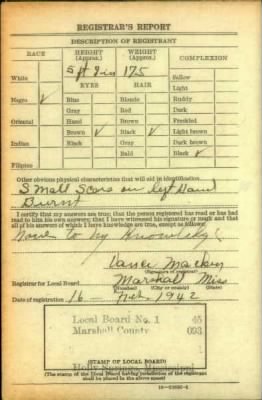 REGISTRAR'S REPORT
DESCRIPTION OF REGISTRANT
RACE HEIGHT (Approx.) WEIGHT (Approx.) COMPLEXION
5 ft 8 in 175
White EYES HAIR Sallow
Light
Negro ✓ Blue Blonde Ruddy
Gray Red Dark
Oriental Hazel Brown Freckled
Brown ✓ Black ✓ Light brown
Indian Black Gray Dark brown
Bald Black ✓
Filipino
Other obvious physical characteristics that will aid in identification
Small Scars on left Hand
Burnt
I certify that my answers are true; that the person registered has read or has had
read to him his own answers; that I have witnessed his signature or mark and that
all of his answers of which I have knowledge are true, except as follows:
None to my Knowledge
Vance
(Signature of registrar)
Registrar for Local Board Marshall Miss
(Number) (City or county) (State)
Date of registration 16 - Feb. 1942
Local Board No. 1 45
Marshall County 093
Holly Springs, Mississippi
(STAMP OF LOCAL BOARD)
(The stamp of the Local Board having jurisdiction of the registrant
shall be placed in the above space)